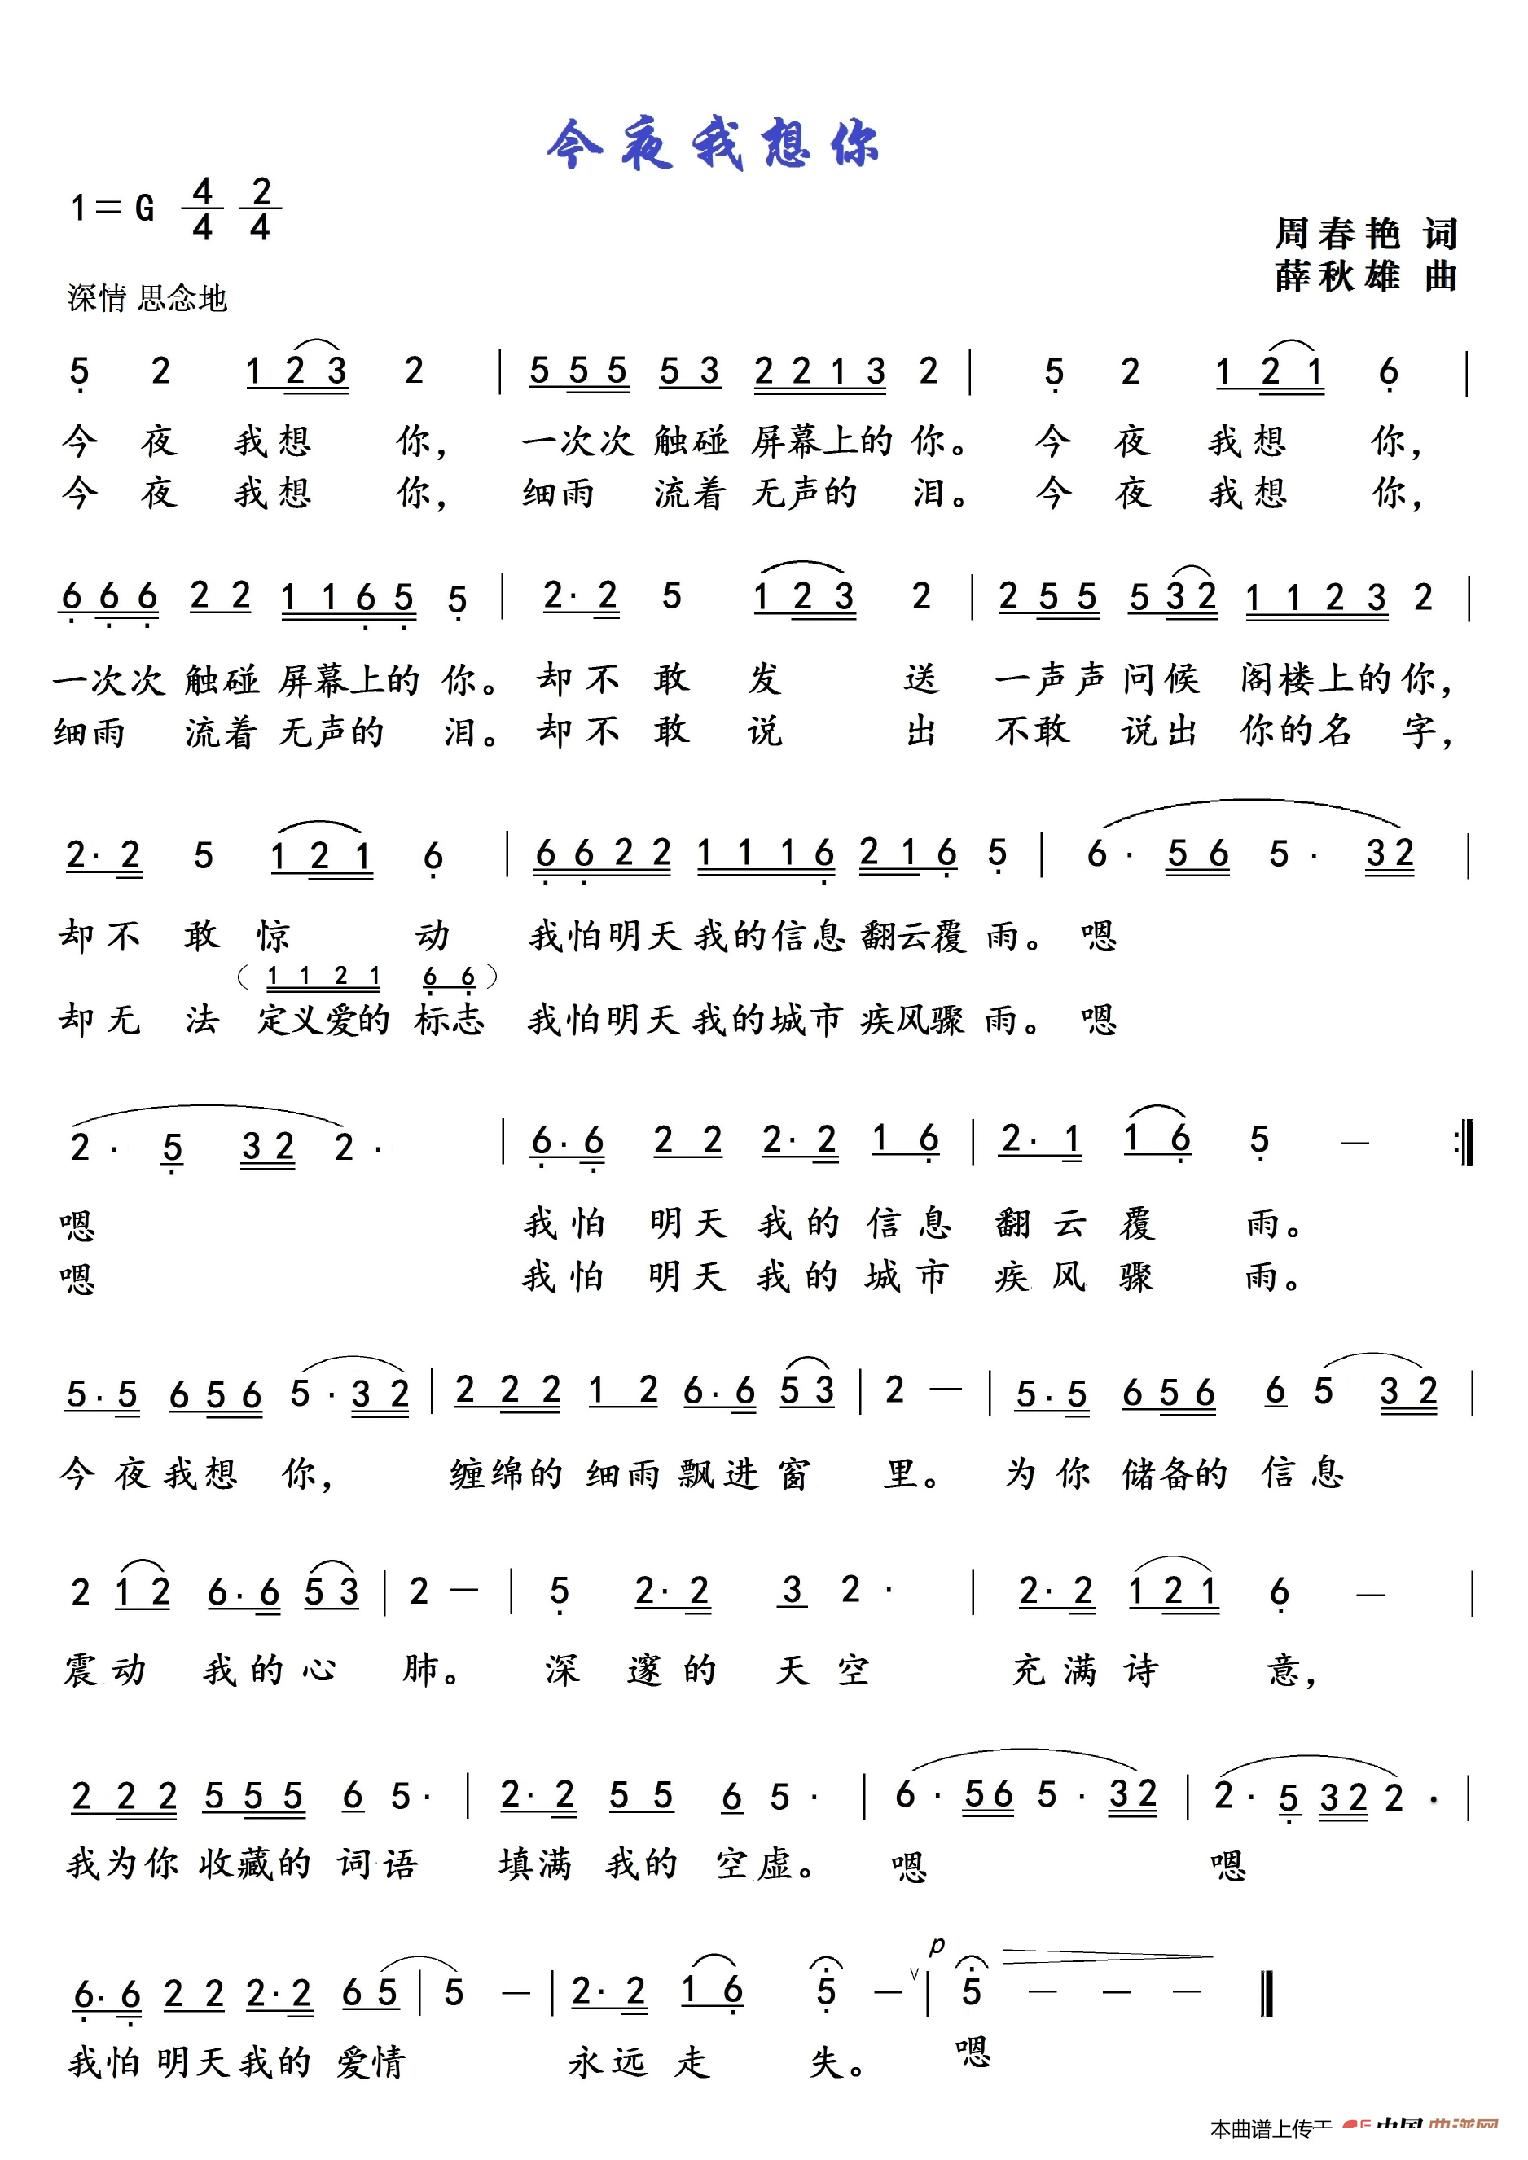 今夜我想你
1=G 4/4 2/4
周春艳 词
薛秋雄 曲
深情 思念地
5 2 1 2 3 2 | 5 5 5 5 3 2 2 1 3 2 | 5 2 1 2 1 6 |
今 夜 我想 你, 一次次 触碰 屏幕上的 你。 今 夜 我想 你,
今 夜 我想 你, 细雨 流着 无声的 泪。 今 夜 我想 你,
6 6 6 2 2 1 1 6 5 5 | 2· 2 5 1 2 3 2 | 2 5 5 5 3 2 1 1 2 3 2 |
一次次 触碰 屏幕上的 你。 却不 敢 发 送 一声声 问候 阁楼上的你,
细雨 流着 无声的 泪。 却不 敢 说 出 不敢 说出 你的名 字,
2· 2 5 1 2 1 6 | 6 6 2 2 1 1 1 6 2 1 6 5 | 6· 5 6 5· 3 2 |
却不 敢 惊 动 我怕明天 我的信息 翻云覆 雨。 嗯
( 1 1 2 1 6 6 )
却无 法 定义爱的 标志 我怕明天 我的城市 疾风骤 雨。 嗯
2· 5 3 2 2· | 6· 6 2 2 2· 2 1 6 | 2· 1 1 6 5 — :‖
嗯 我怕 明天 我的 信息 翻云 覆 雨。
嗯 我怕 明天 我的 城市 疾风 骤 雨。
5· 5 6 5 6 5· 3 2 | 2 2 2 1 2 6· 6 5 3 | 2 — | 5· 5 6 5 6 6 5 3 2 |
今夜 我想 你, 缠绵的 细雨 飘进 窗 里。 为你 储备的 信息
2 1 2 6· 6 5 3 | 2 — | 5 2· 2 3 2· | 2· 2 1 2 1 6 — |
震动 我的 心 肺。 深 邃的 天空 充满 诗 意,
2 2 2 5 5 5 6 5· | 2· 2 5 5 6 5· | 6· 5 6 5· 3 2 | 2· 5 3 2 2· |
我为你 收藏的 词语 填满 我的 空虚。 嗯 嗯
p
6· 6 2 2 2· 2 6 5 | 5 — | 2· 2 1 6 5 — ∨ | 5 — — — ‖
我怕 明天 我的 爱情 永远 走 失。 嗯
本曲谱上传于 中国曲谱网